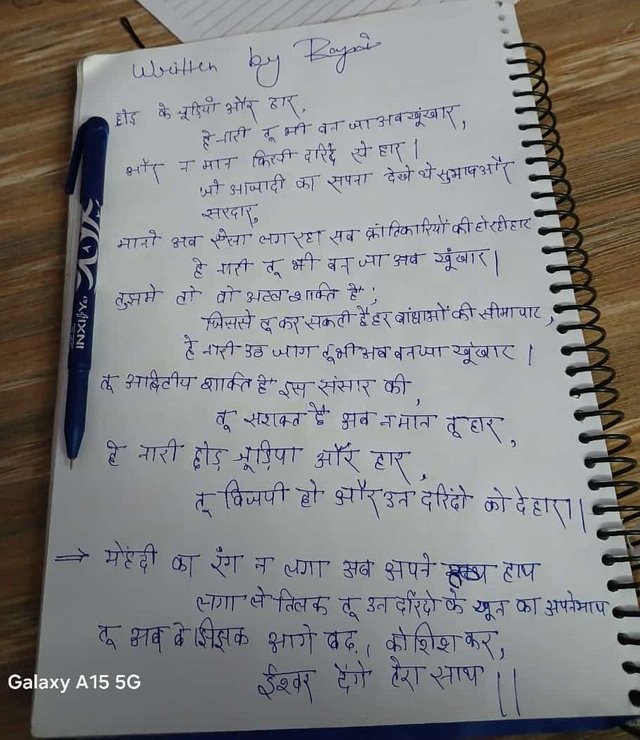 Written by Rajni
छोड़ के चूड़ियाँ और हार,
हे नारी तू भी बन जा अब खूंखार,
और न मान किसी दरिंदे से हार।
जो आजादी का सपना देखे थे सुभाष और
सरदार,
मानो अब ऐसा लग रहा सब क्रांतिकारियों की हो रही हार
हे नारी तू भी बन जा अब खूंखार।
तुझमे तो वो शक्ति है,
जिससे तू कर सकती है हर बांधाओं की सीमा पार,
हे नारी उठ जाग तू भी अब बन जा खूंखार।
तू अद्वितीय शक्ति है इस संसार की,
तू सशक्त है अब न मान तू हार,
हे नारी छोड़ चूड़िया और हार,
तू विजयी हो और उन दरिंदो को दे हारा।।
⇒ मेंहदी का रंग न लगा अब अपने हाथ
लगा ले तिलक तू उन दरिंदो के खून का अपने माथ
तू अब बेझिझक आगे बढ़, कोशिश कर,
ईश्वर देंगे तेरा साथ ||
YIXINI
Galaxy A15 5G